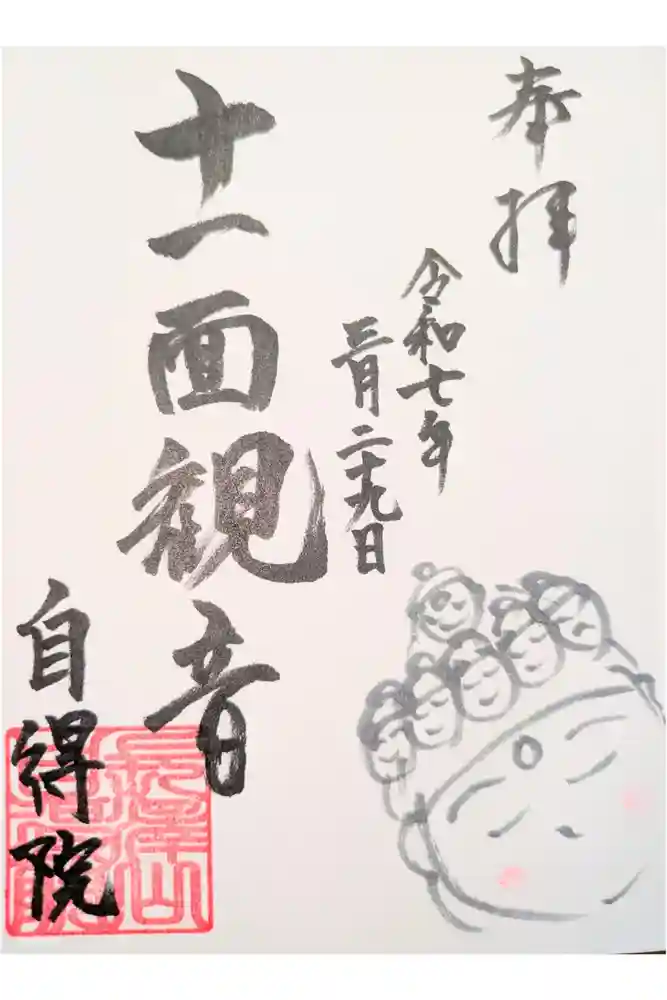 奉拝
令和七年
三月二十九日
十一面観音
自得院